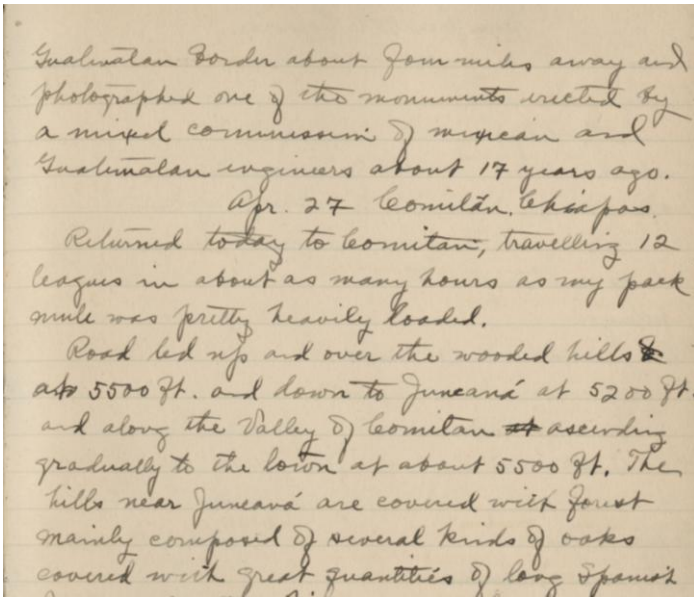 Guatematan border about four miles away and
photographed one of the monuments erected by
a mixed commission of mexican and
Guatemalan engineers about 17 years ago.
Apr. 27 Comitán, Chiapas.
Returned today to Comitan, travelling 12
leagues in about as many hours as my pack
mule was pretty heavily loaded.
Road led up and over the wooded hills
at 5500 ft. and down to Juncaná at 5200 ft.
and along the Valley of Comitan at ascending
gradually to the town at about 5500 ft. The
hills near Juncaná are covered with forest
mainly composed of several kinds of oaks
covered with great quantities of long Spanish